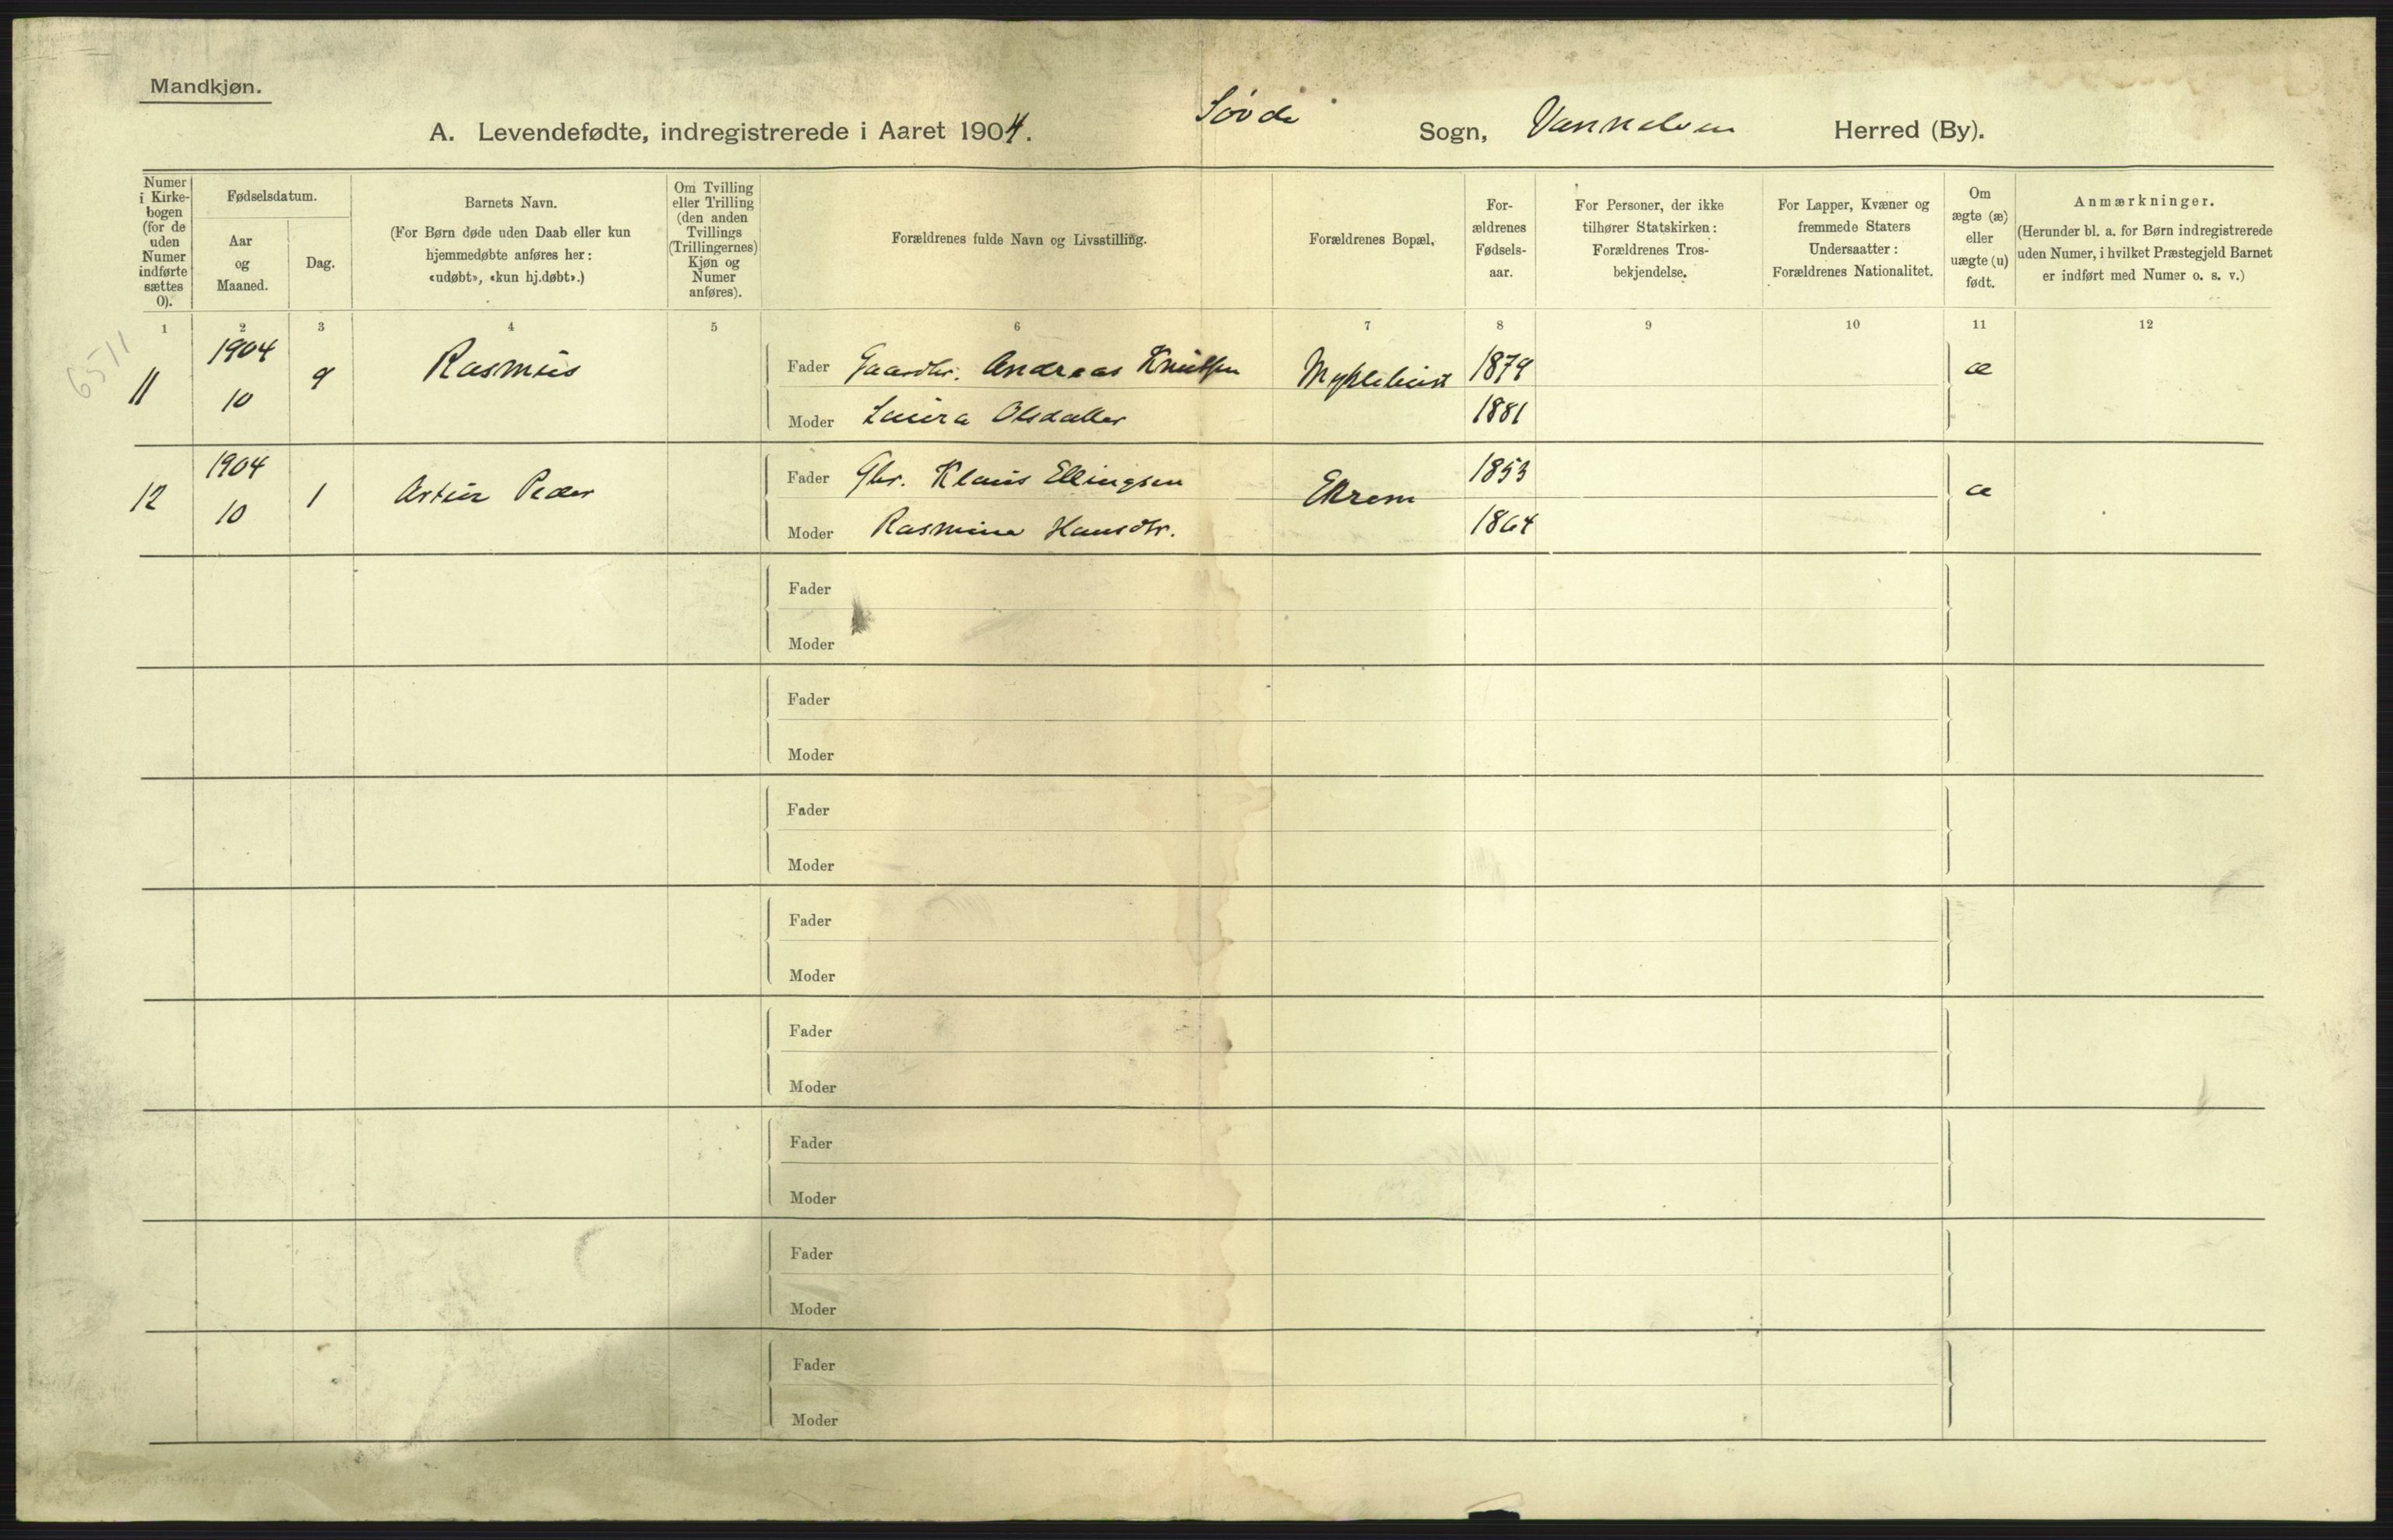 Mandkjøn.
A. Levendefødte, indregistrerede i Aaret 1904. Søvde Sogn, Vannelven Herred (By).
Numer i Kirke-bogen (for de uden Numer indførte sættes 0).
Fødselsdatum.
Aar og Maaned.
Dag.
Barnets Navn.
(For Børn døde uden Daab eller kun
hjemmedøbte anføres her:
«udøbt», «kun hj.døbt».)
Om Tvilling
eller Trilling
(den anden
Tvillings
(Trillingernes)
Kjøn og
Numer
anføres).
Forældrenes fulde Navn og Livsstilling.
Forældrenes Bopæl,
For-
ældrenes
Fødsels-
aar.
For Personer, der ikke
tilhører Statskirken:
Forældrenes Tros-
bekjendelse.
For Lapper, Kvæner og
fremmede Staters
Undersaatter:
Forældrenes Nationalitet.
Om
ægte (æ)
eller
uægte (u)
født.
Anmærkninger.
(Herunder bl. a. for Børn indregistrerede
uden Numer, i hvilket Præstegjeld Barnet
er indført med Numer o. s. v.)
1 2 3 4 5 6 7 8 9 10 11 12
6511
11 1904 10 9 Rasmus Fader Gaardbr. Andreas Knutsen Myklebust 1879 æ
Moder Laura Olsdatter 1881
12 1904 10 1 Artur Peder Fader Gbr. Klaus Ellingsen Ekrem 1853 æ
Moder Rasmine Hansdtr. 1864
Fader
Moder
Fader
Moder
Fader
Moder
Fader
Moder
Fader
Moder
Fader
Moder
Fader
Moder
Fader
Moder